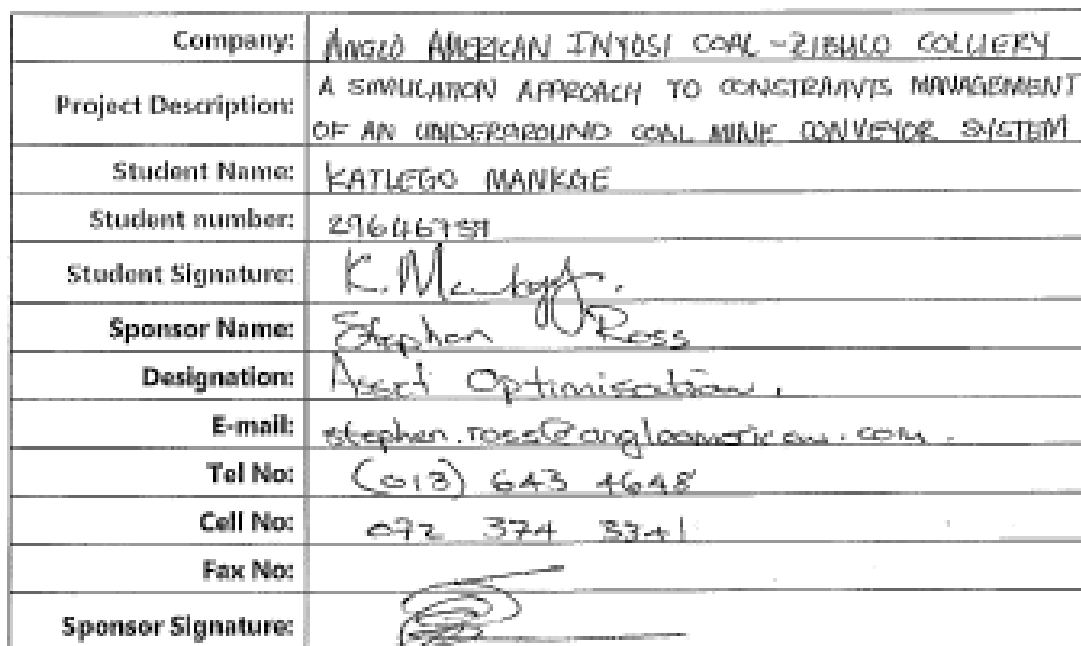 Company: ANGLO AMERICAN INYOSI COAL - ZIBULO COLLIERY
Project Description: A SIMULATION APPROACH TO CONSTRAINTS MANAGEMENT
OF AN UNDERGROUND COAL MINE CONVEYOR SYSTEM
Student Name: KATLEGO MANKGE
Student number:
Student Signature: K. Mankge.
Sponsor Name: Stephen Ross
Designation: Asset Optimisation.
E-mail: stephen.ross@angloamerican.com.
Tel No: (013) 643 4648
Cell No: 072 374 3341
Fax No:
Sponsor Signature: